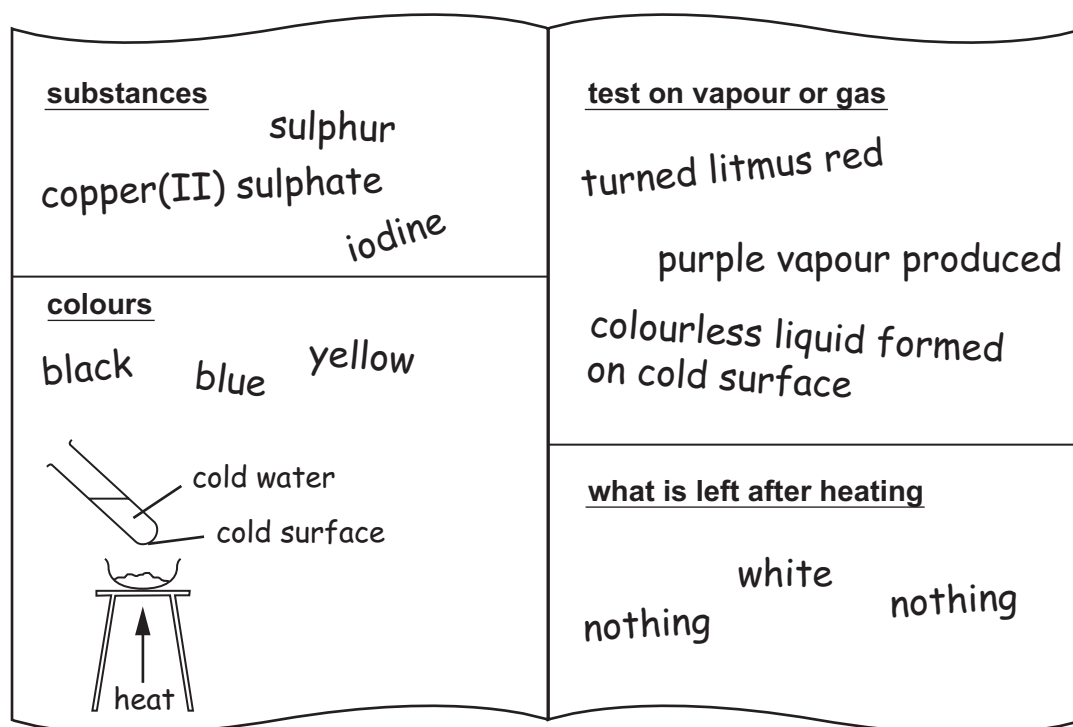 substances
sulphur
copper(II) sulphate
iodine
colours
black blue yellow
cold water
cold surface
heat
test on vapour or gas
turned litmus red
purple vapour produced
colourless liquid formed
on cold surface
what is left after heating
white
nothing nothing